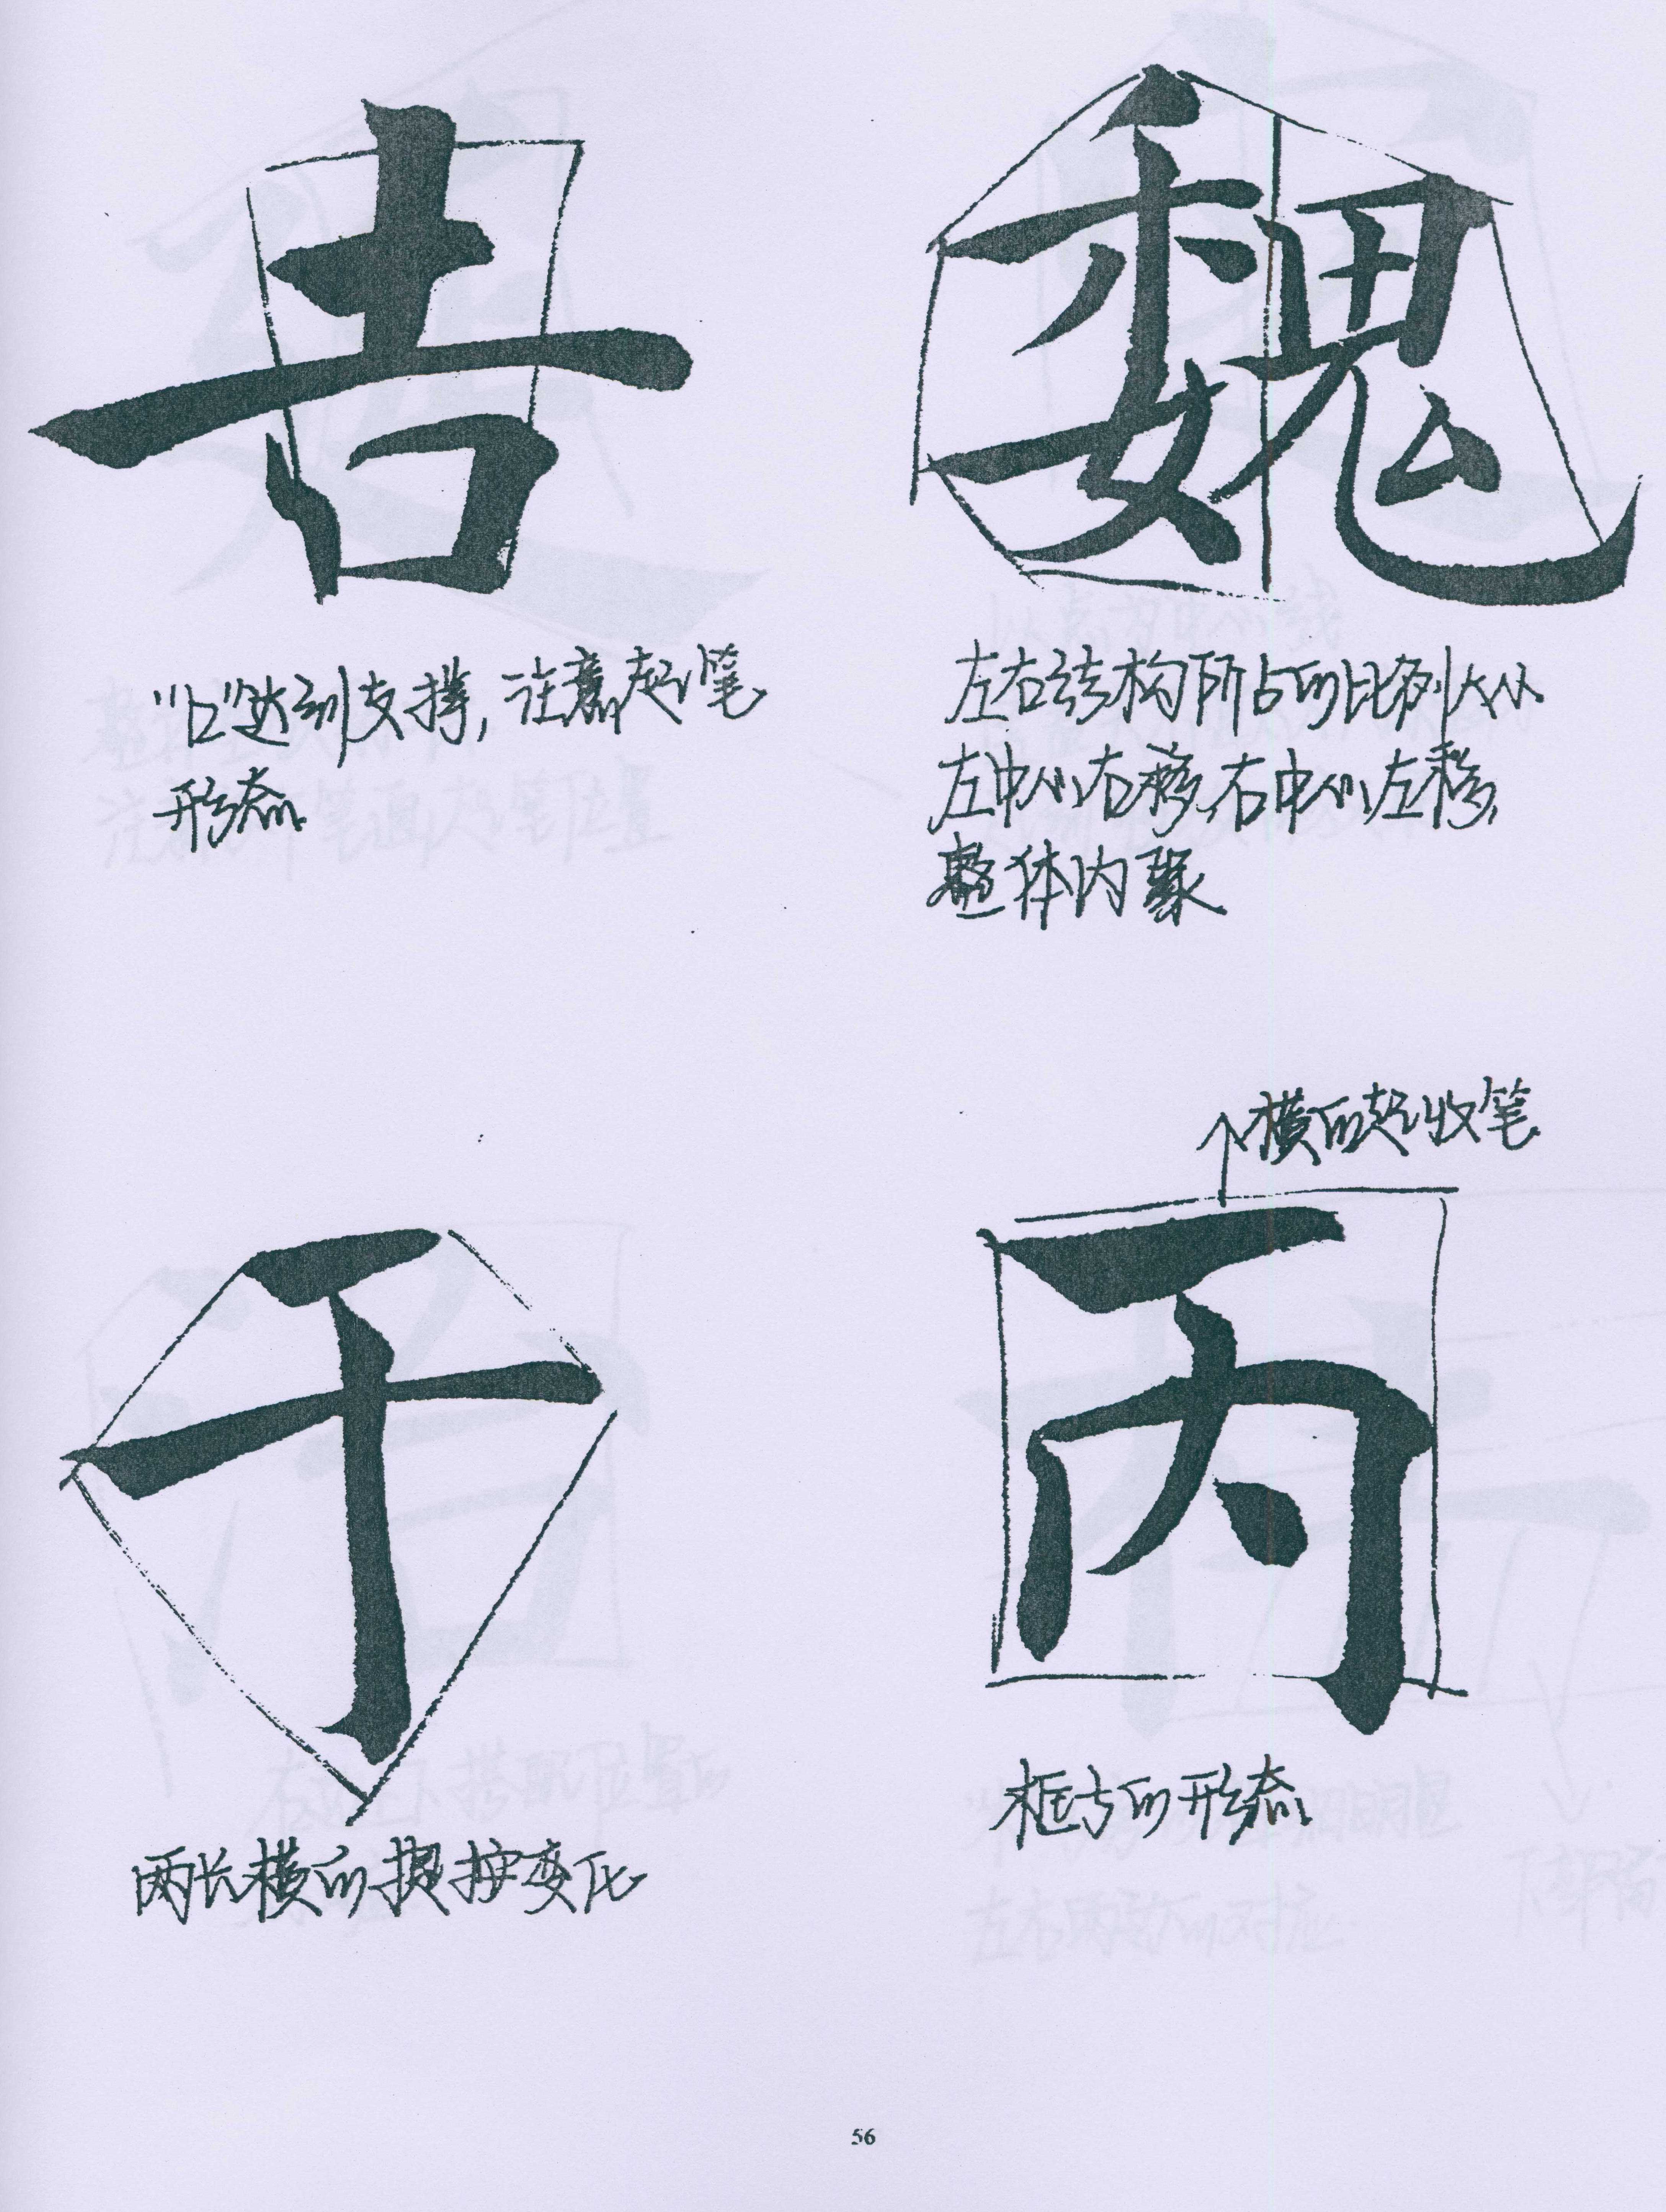 告
"口"达到支撑，注意起笔
形态
魏
左右结构所占的比例大小
左中心右移，右中心左移，
整体内聚
干
两长横的提按变化
↑横的起收笔
丙
框去的形态
56